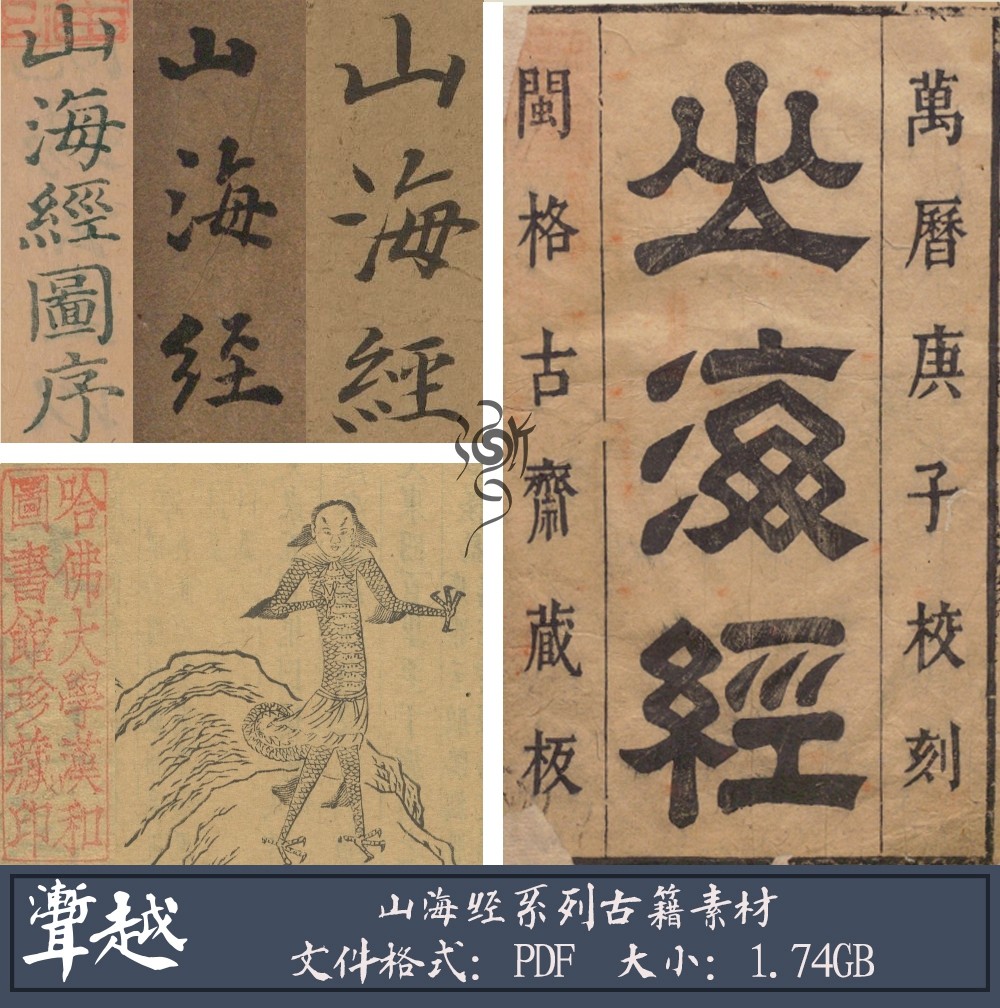 山海經圖序
山海经
山海經
萬曆庚子校刻
山海經
閩格古齋蔵板
哈佛大學漢和
圖書館珍藏印
越
山海经系列古籍素材
文件格式：PDF 大小：1.74GB